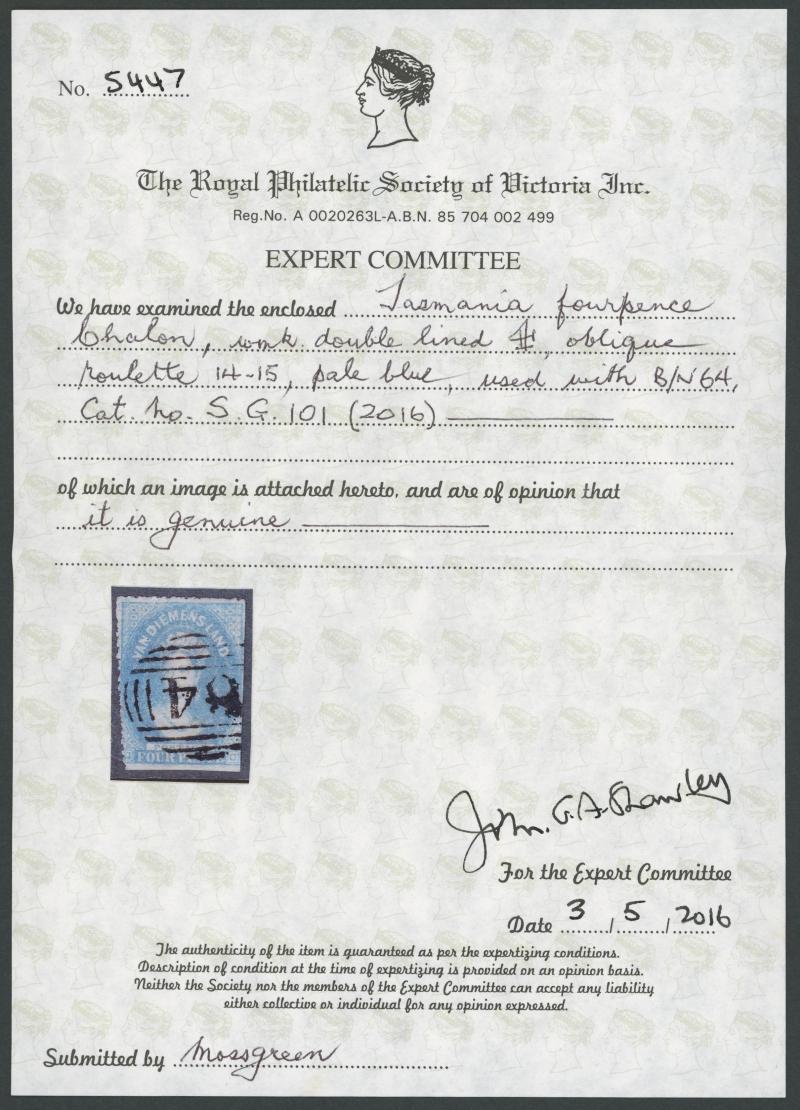 No. 5447
The Royal Philatelic Society of Victoria Inc.
Reg.No. A 0020263L-A.B.N. 85 704 002 499
EXPERT COMMITTEE
We have examined the enclosed Tasmania fourpence
Chalon, wmk double lined 4, oblique
roulette 14-15, pale blue, used with B/N 64,
Cat. No. S.G. 101 (2016)
of which an image is attached hereto, and are of opinion that
it is genuine
VAN DIEMENS LAND
64
FOUR
John. G.A.
For the Expert Committee
Date 3/5/2016
The authenticity of the item is guaranteed as per the expertizing conditions.
Description of condition at the time of expertizing is provided on an opinion basis.
Neither the Society nor the members of the Expert Committee can accept any liability
either collective or individual for any opinion expressed.
Submitted by Mossgreen